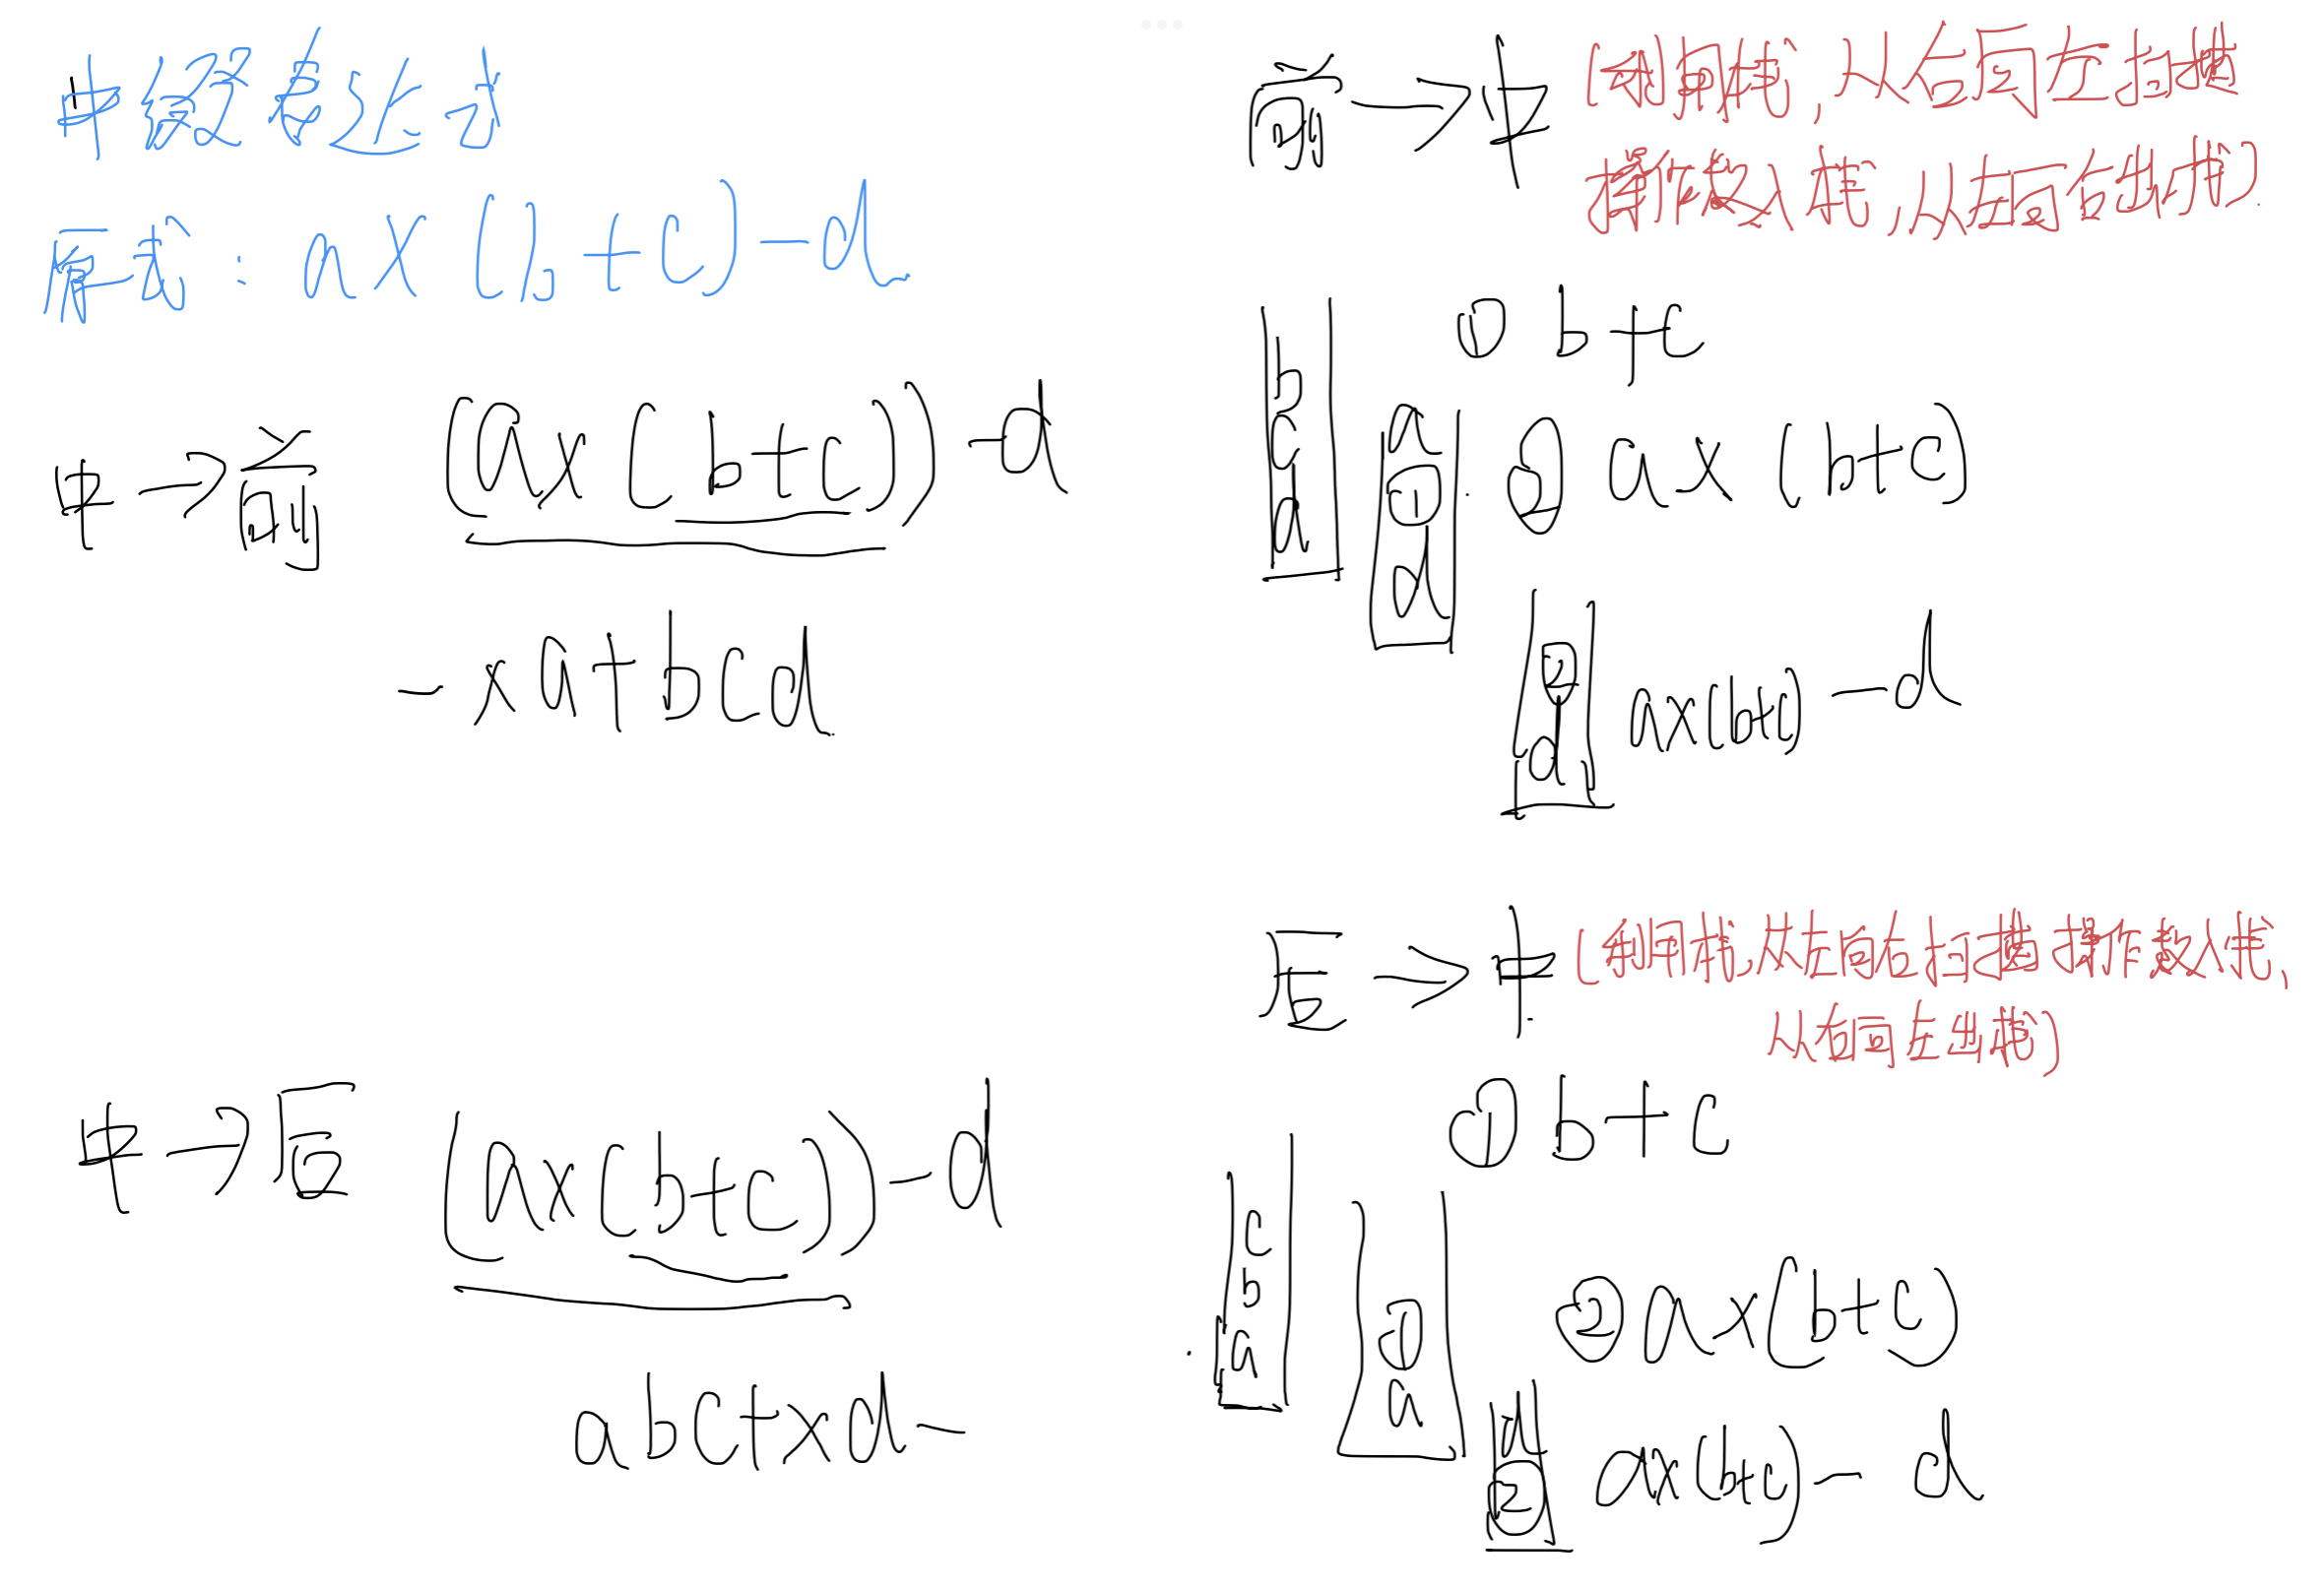 中缀表达式
原式：a×(b+c)-d
中→前 (a×(b+c))-d
-×a+bcd
中→后 (a×(b+c))-d
abc+×d-
前→中 (利用栈，从右向左扫描
操作数入栈，从左向右出栈)
b
c
d
① b+c
a
①
d
② a×(b+c)
②
d
a×(b+c)-d
后→中 (利用栈，从左向右扫描 操作数入栈、
从右向左出栈)
① b+c
c
b
a
①
a
② a×(b+c)
d
②
a×(b+c)-d